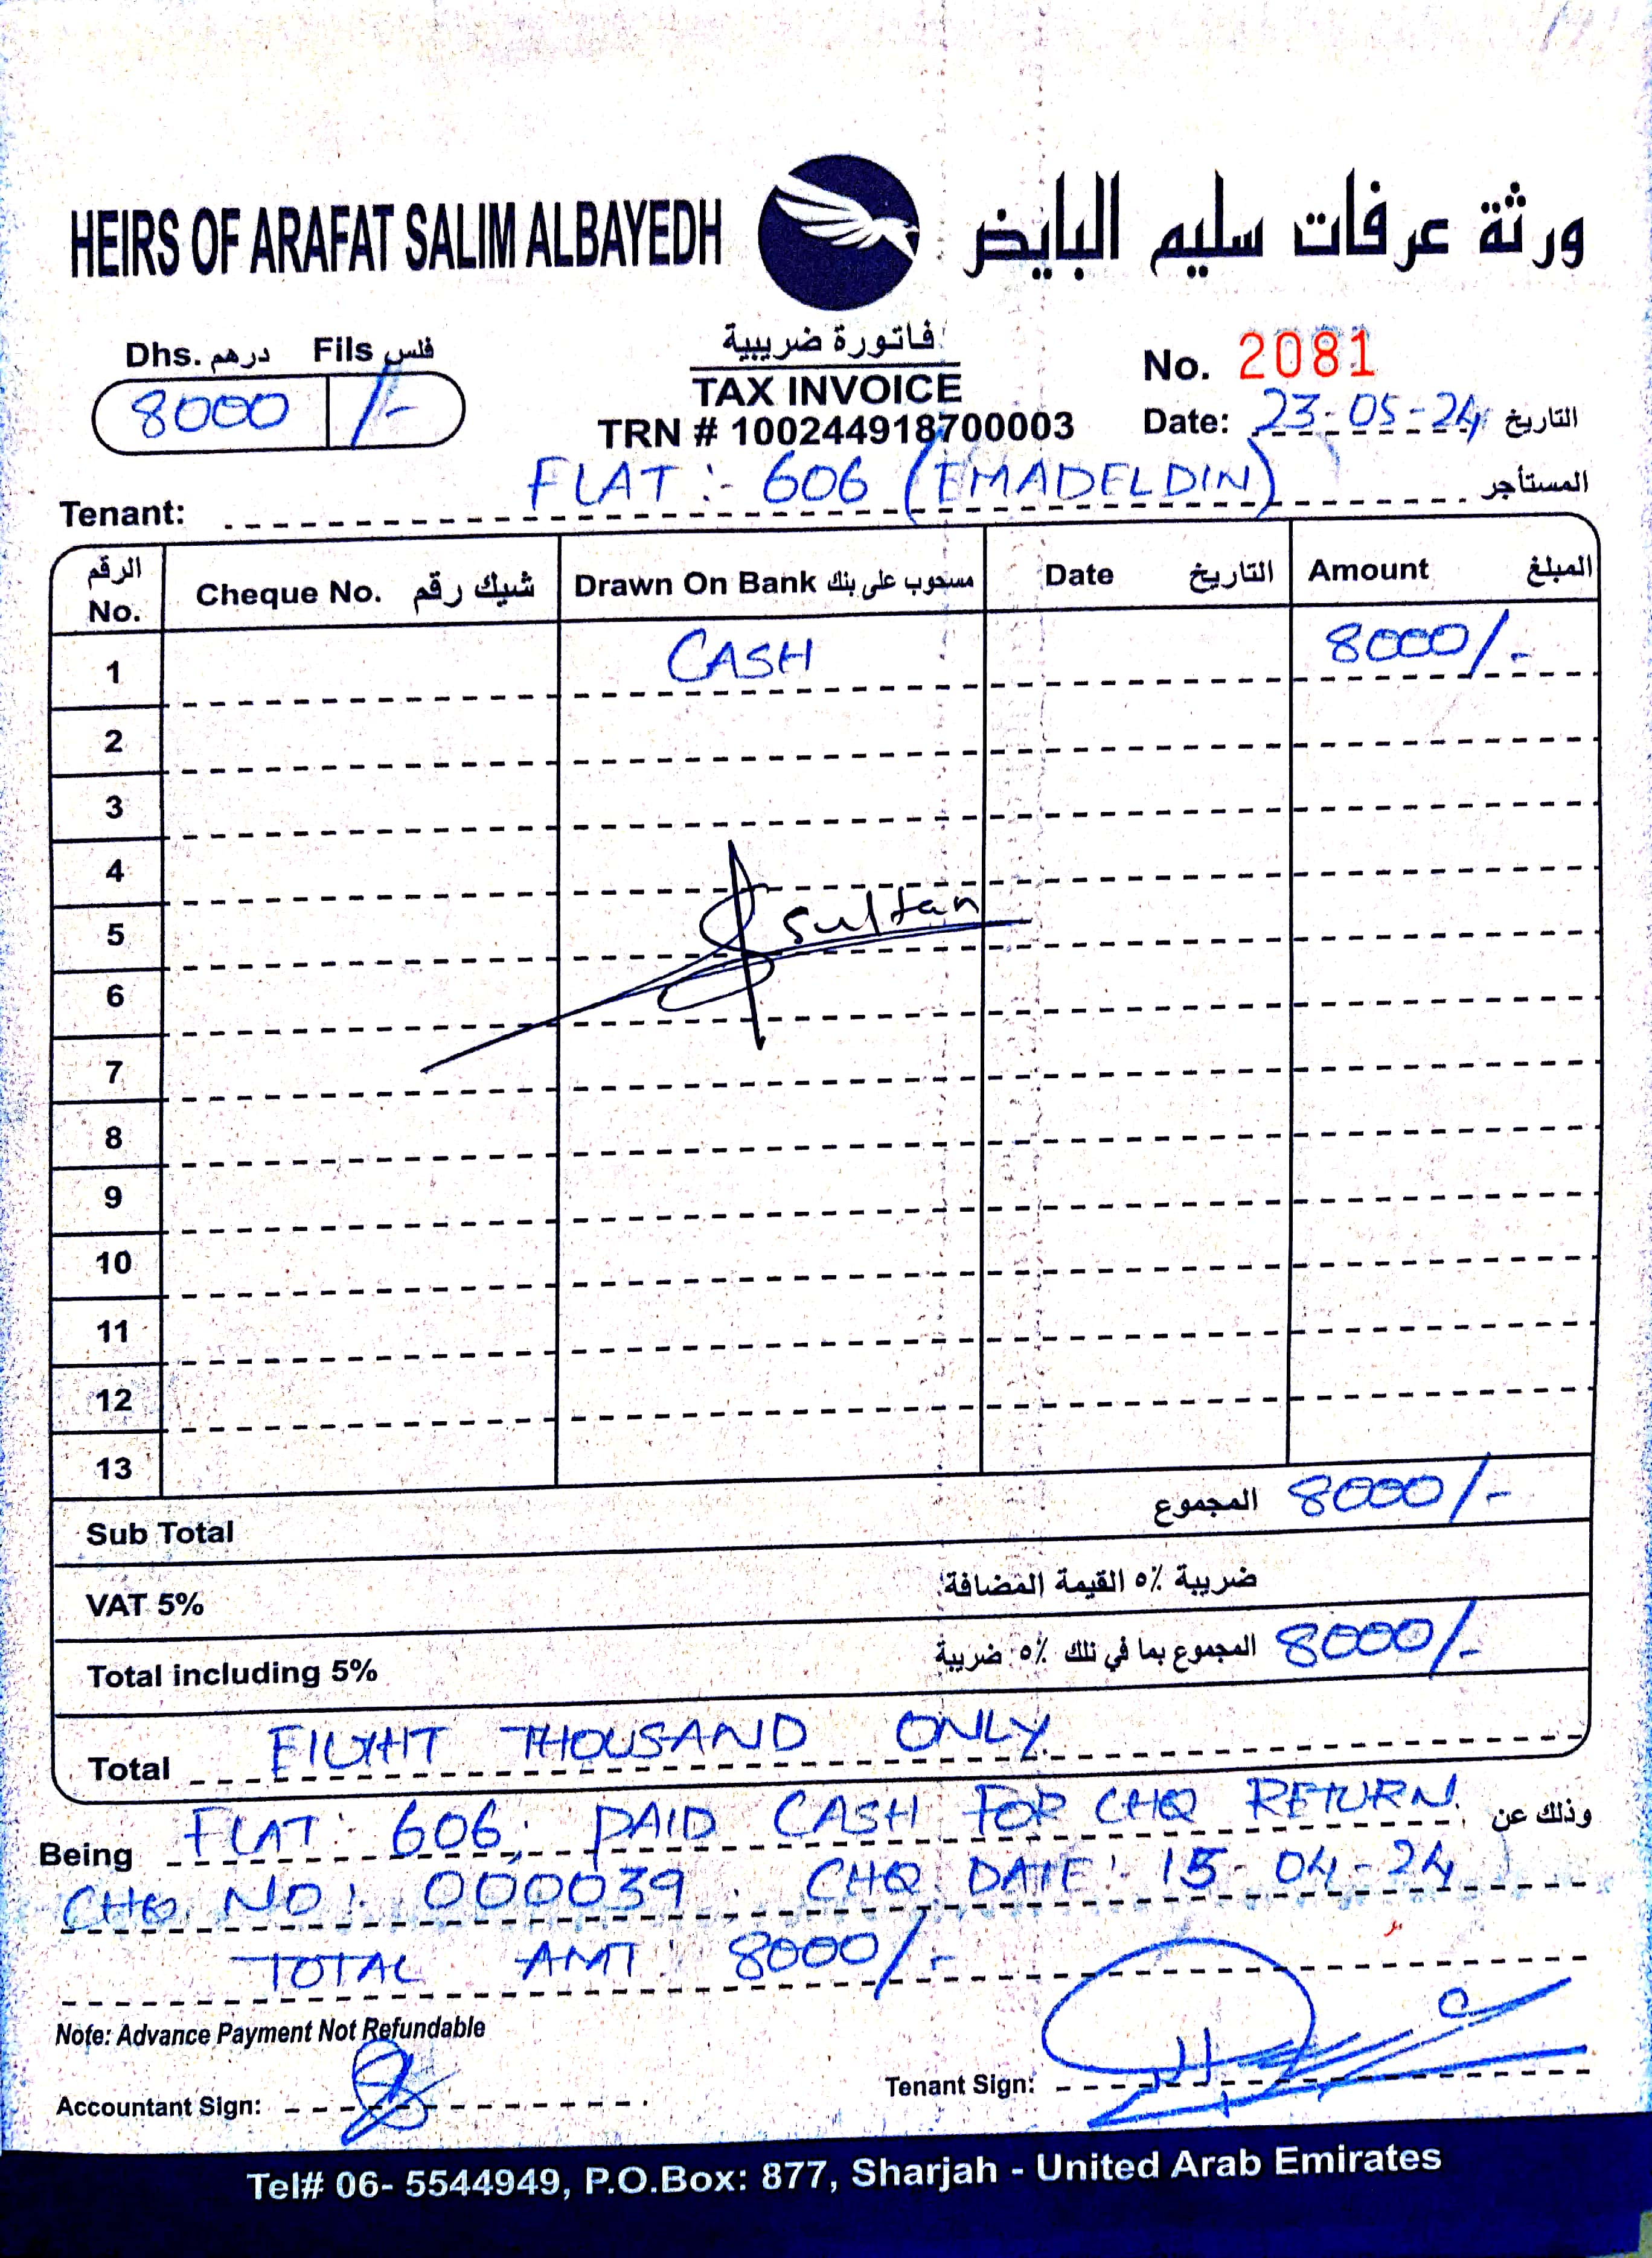 HEIRS OF ARAFAT SALIM ALBAYEDH ورثة عرفات سليم البايض
Dhs. درهم Fils فلس
8000 /-
فاتورة ضريبية
TAX INVOICE
TRN # 100244918700003
No. 2081
Date: 23-05-24 التاريخ
Tenant: FLAT:- 606 (EMADELDIN) المستأجر
الرقم No. Cheque No. شيك رقم Drawn On Bank مسحوب على بنك Date التاريخ Amount المبلغ
1 CASH 8000/-
2
3
4
5 Sultan
6
7
8
9
10
11
12
13
Sub Total المجموع 8000/-
VAT 5% ضريبة ٥٪ القيمة المضافة
Total including 5% المجموع بما في ذلك ٥٪ ضريبة 8000/-
Total EIGHT THOUSAND ONLY.
Being FLAT: 606, PAID CASH FOR CHQ RETURN. وذلك عن
CHQ. NO: 000039. CHQ. DATE: 15-04-24
TOTAL AMT: 8000/-
Note: Advance Payment Not Refundable
Accountant Sign:
Tenant Sign:
Tel# 06- 5544949, P.O.Box: 877, Sharjah - United Arab Emirates